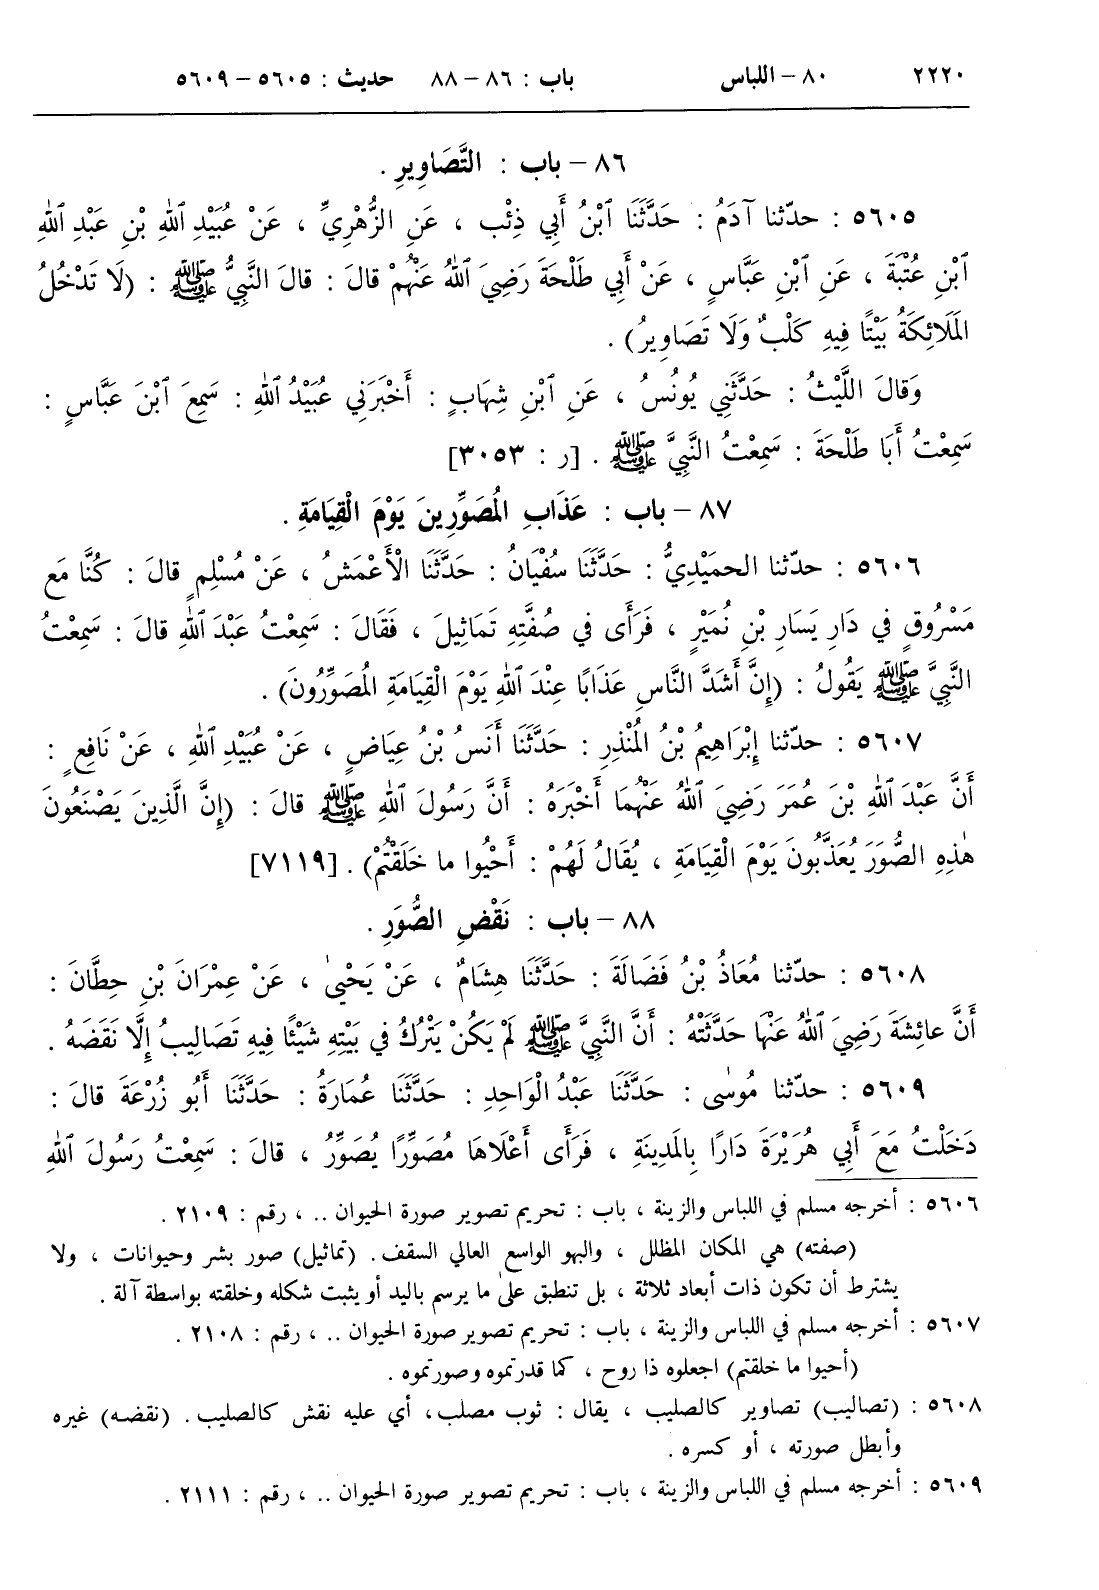 ٢٢٢٠ ٨٠ – اللباس باب : ٨٦ – ٨٨ حديث : ٥٦٠٥ – ٥٦٠٩
٨٦ – باب : التَّصَاوِيرِ .
٥٦٠٥ : حدّثنا آدَمُ : حَدَّثَنَا ٱبْنُ أَبِي ذِئْب ، عَنِ الزُّهْرِيِّ ، عَنْ عُبَيْدِ ٱللهِ بْنِ عَبْدِ ٱللهِ
ٱبْنِ عُتْبَةَ ، عَنِ ٱبْنِ عَبَّاسٍ ، عَنْ أَبِي طَلْحَةَ رَضِيَ ٱللهُ عَنْهُمْ قالَ : قالَ النَّبِيُّ ﷺ : (لَا تَدْخُلُ
المَلَائِكَةُ بَيْتًا فِيهِ كَلْبٌ وَلَا تَصَاوِيرُ) .
وَقالَ اللَّيْثُ : حَدَّثَنِي يُونُسُ ، عَنِ ٱبْنِ شِهَابٍ : أَخْبَرَنِي عُبَيْدُ ٱللهِ : سَمِعَ ٱبْنَ عَبَّاسٍ :
سَمِعْتُ أَبَا طَلْحَةَ : سَمِعْتُ النَّبِيَّ ﷺ . [ر : ٣٠٥٣]
٨٧ – باب : عَذَابِ المُصَوِّرِينَ يَوْمَ الْقِيَامَةِ .
٥٦٠٦ : حدّثنا الحمَيْدِيُّ : حَدَّثَنَا سُفْيَانُ : حَدَّثَنَا الْأَعْمَشُ ، عَنْ مُسْلِمٍ قالَ : كُنَّا مَعَ
مَسْرُوقٍ في دَارِ يَسَارِ بْنِ نُمَيْرٍ ، فَرَأَى في صُفَّتِهِ تَمَاثِيلَ ، فَقَالَ : سَمِعْتُ عَبْدَ ٱللهِ قالَ : سَمِعْتُ
النَّبِيَّ ﷺ يَقُولُ : (إِنَّ أَشَدَّ النَّاسِ عَذَابًا عِنْدَ ٱللهِ يَوْمَ الْقِيَامَةِ المُصَوِّرُونَ) .
٥٦٠٧ : حدّثنا إِبْرَاهِيمُ بْنُ المُنْذِرِ : حَدَّثَنَا أَنَسُ بْنُ عِيَاضٍ ، عَنْ عُبَيْدِ ٱللهِ ، عَنْ نَافِعٍ :
أَنَّ عَبْدَ ٱللهِ بْنَ عُمَرَ رَضِيَ ٱللهُ عَنْهُمَا أَخْبَرَهُ : أَنَّ رَسُولَ ٱللهِ ﷺ قالَ : (إِنَّ الَّذِينَ يَصْنَعُونَ
هٰذِهِ الصُّوَرَ يُعَذَّبُونَ يَوْمَ الْقِيَامَةِ ، يُقَالُ لَهُمْ : أَحْيُوا ما خَلَقْتُمْ) . [٧١١٩]
٨٨ – باب : نَقْضِ الصُّوَرِ .
٥٦٠٨ : حدّثنا مُعَاذُ بْنُ فَضَالَةَ : حَدَّثَنَا هِشَامٌ ، عَنْ يَحْيىٰ ، عَنْ عِمْرَانَ بْنِ حِطَّانَ :
أَنَّ عائِشَةَ رَضِيَ ٱللهُ عَنْهَا حَدَّثَتْهُ : أَنَّ النَّبِيَّ ﷺ لَمْ يَكُنْ يَتْرُكُ في بَيْتِهِ شَيْئًا فِيهِ تَصَالِيبُ إِلَّا نَقَضَهُ .
٥٦٠٩ : حدّثنا مُوسٰى : حَدَّثَنَا عَبْدُ الْوَاحِدِ : حَدَّثَنَا عُمَارَةُ : حَدَّثَنَا أَبُو زُرْعَةَ قالَ :
دَخَلْتُ مَعَ أَبِي هُرَيْرَةَ دَارًا بِالمَدِينَةِ ، فَرَأَى أَعْلَاهَا مُصَوِّرًا يُصَوِّرُ ، قالَ : سَمِعْتُ رَسُولَ ٱللهِ
٥٦٠٦ : أخرجه مسلم في اللباس والزينة ، باب : تحريم تصوير صورة الحيوان .. ، رقم : ٢١٠٩ .
(صفته) هي المكان المظلل ، والبهو الواسع العالي السقف . (تماثيل) صور بشر وحيوانات ، ولا
يشترط أن تكون ذات أبعاد ثلاثة ، بل تنطبق علىٰ ما يرسم باليد أو يثبت شكله وخلقته بواسطة آلة .
٥٦٠٧ : أخرجه مسلم في اللباس والزينة ، باب : تحريم تصوير صورة الحيوان .. ، رقم : ٢١٠٨ .
(أحيوا ما خلقتم) اجعلوه ذا روح ، كما قدرتموه وصورتموه .
٥٦٠٨ : (تصاليب) تصاوير كالصليب ، يقال : ثوب مصلب ، أي عليه نقش كالصليب . (نقضه) غيره
وأبطل صورته ، أو كسره .
٥٦٠٩ : أخرجه مسلم في اللباس والزينة ، باب : تحريم تصوير صورة الحيوان .. ، رقم : ٢١١١ .